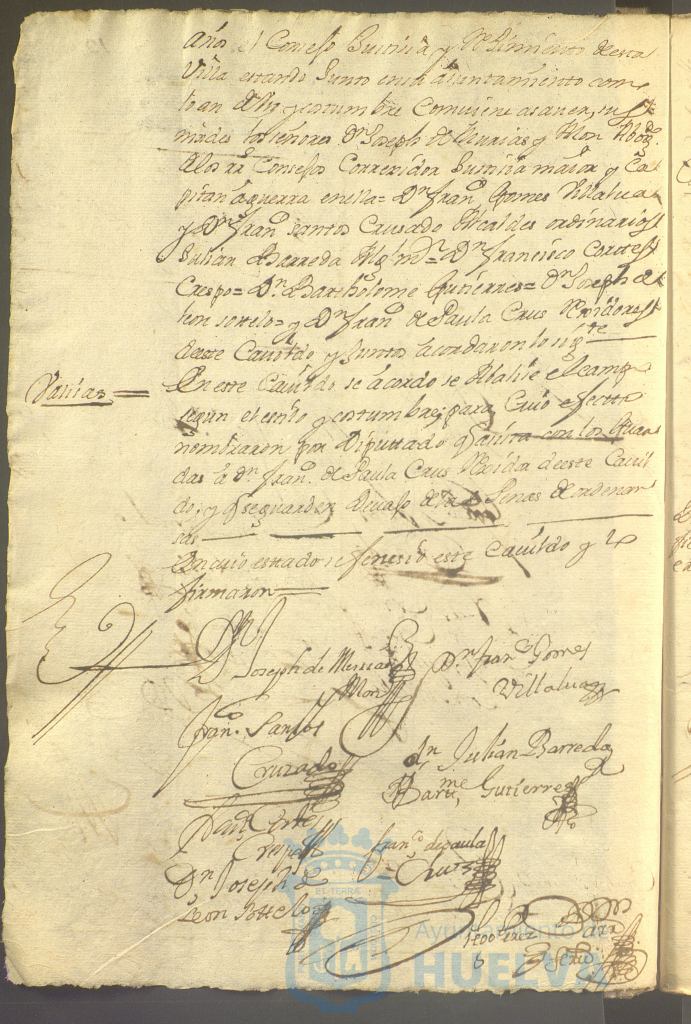 años el Consejo Justicia y Reximiento de esta
Villa estando Junto en su aiuntamiento como
lo an de Uso y costumbre Combiene a saver, sus
mrdes los señores Dn Joseph de Murias y Mon Abogdo
de los Rs Consejos Correxidor Justicia maior y Ca
pitan aguerra en ella= Dn Franco Gomes Villalua
y Dn Franco Santos Crusado Alcaldes ordinarios
Julian Barreda Algl mor= Dn Francisco Cortes
Crespo= Dn Bartholome Gutierres= Dn Joseph de
leon sotelo= y Dn Franco de Paula Crus Rexidores
deeste Cavildo y Juntos acordaron lo sigte
Varias = En este Cavildo se acordo se Visite el campo
segun el estilo y costumbre, para Cuio efecto
nombraron por Diputtado con los Guar
das a Dn Franco de Paula Crus Rexidor deeste Cavil
do, y se guarden ordenan
sas
En cuio estado se fenesio este Cavildo y lo
firmaron=
Dn Joseph de Murias
Mon
Dn Franco Gomes
Villalua
Franco Santos
Cruzado
dn Julian Barreda
Barme Gutierres
Franco Cortes
Crespo
Franco de paula
Crus
Dn Joseph de
Leon Sotelo
Perez
EL TERRÆ
Ayuntamiento de
HUELVA